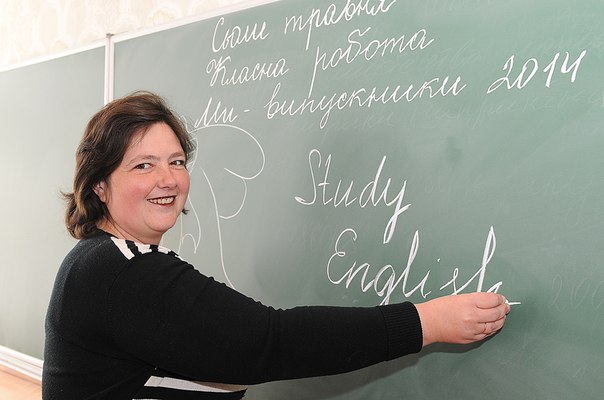 Сьоме травня
Класна робота
Ми - випускники 2014
Study
English